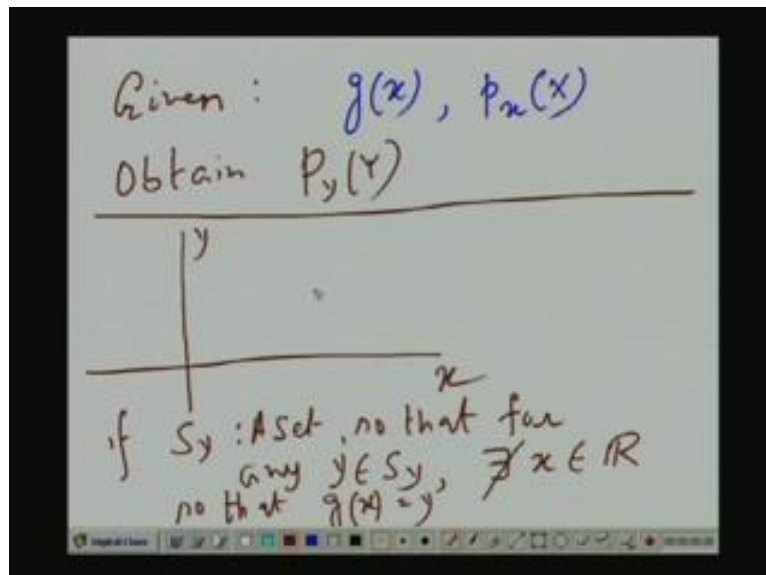 Given : g(x) , p_x(X)
Obtain P_y(Y)
y
x
if S_y : A set, so that for
any y ∈ S_y, ∄ x ∈ ℝ
so that g(x) = y